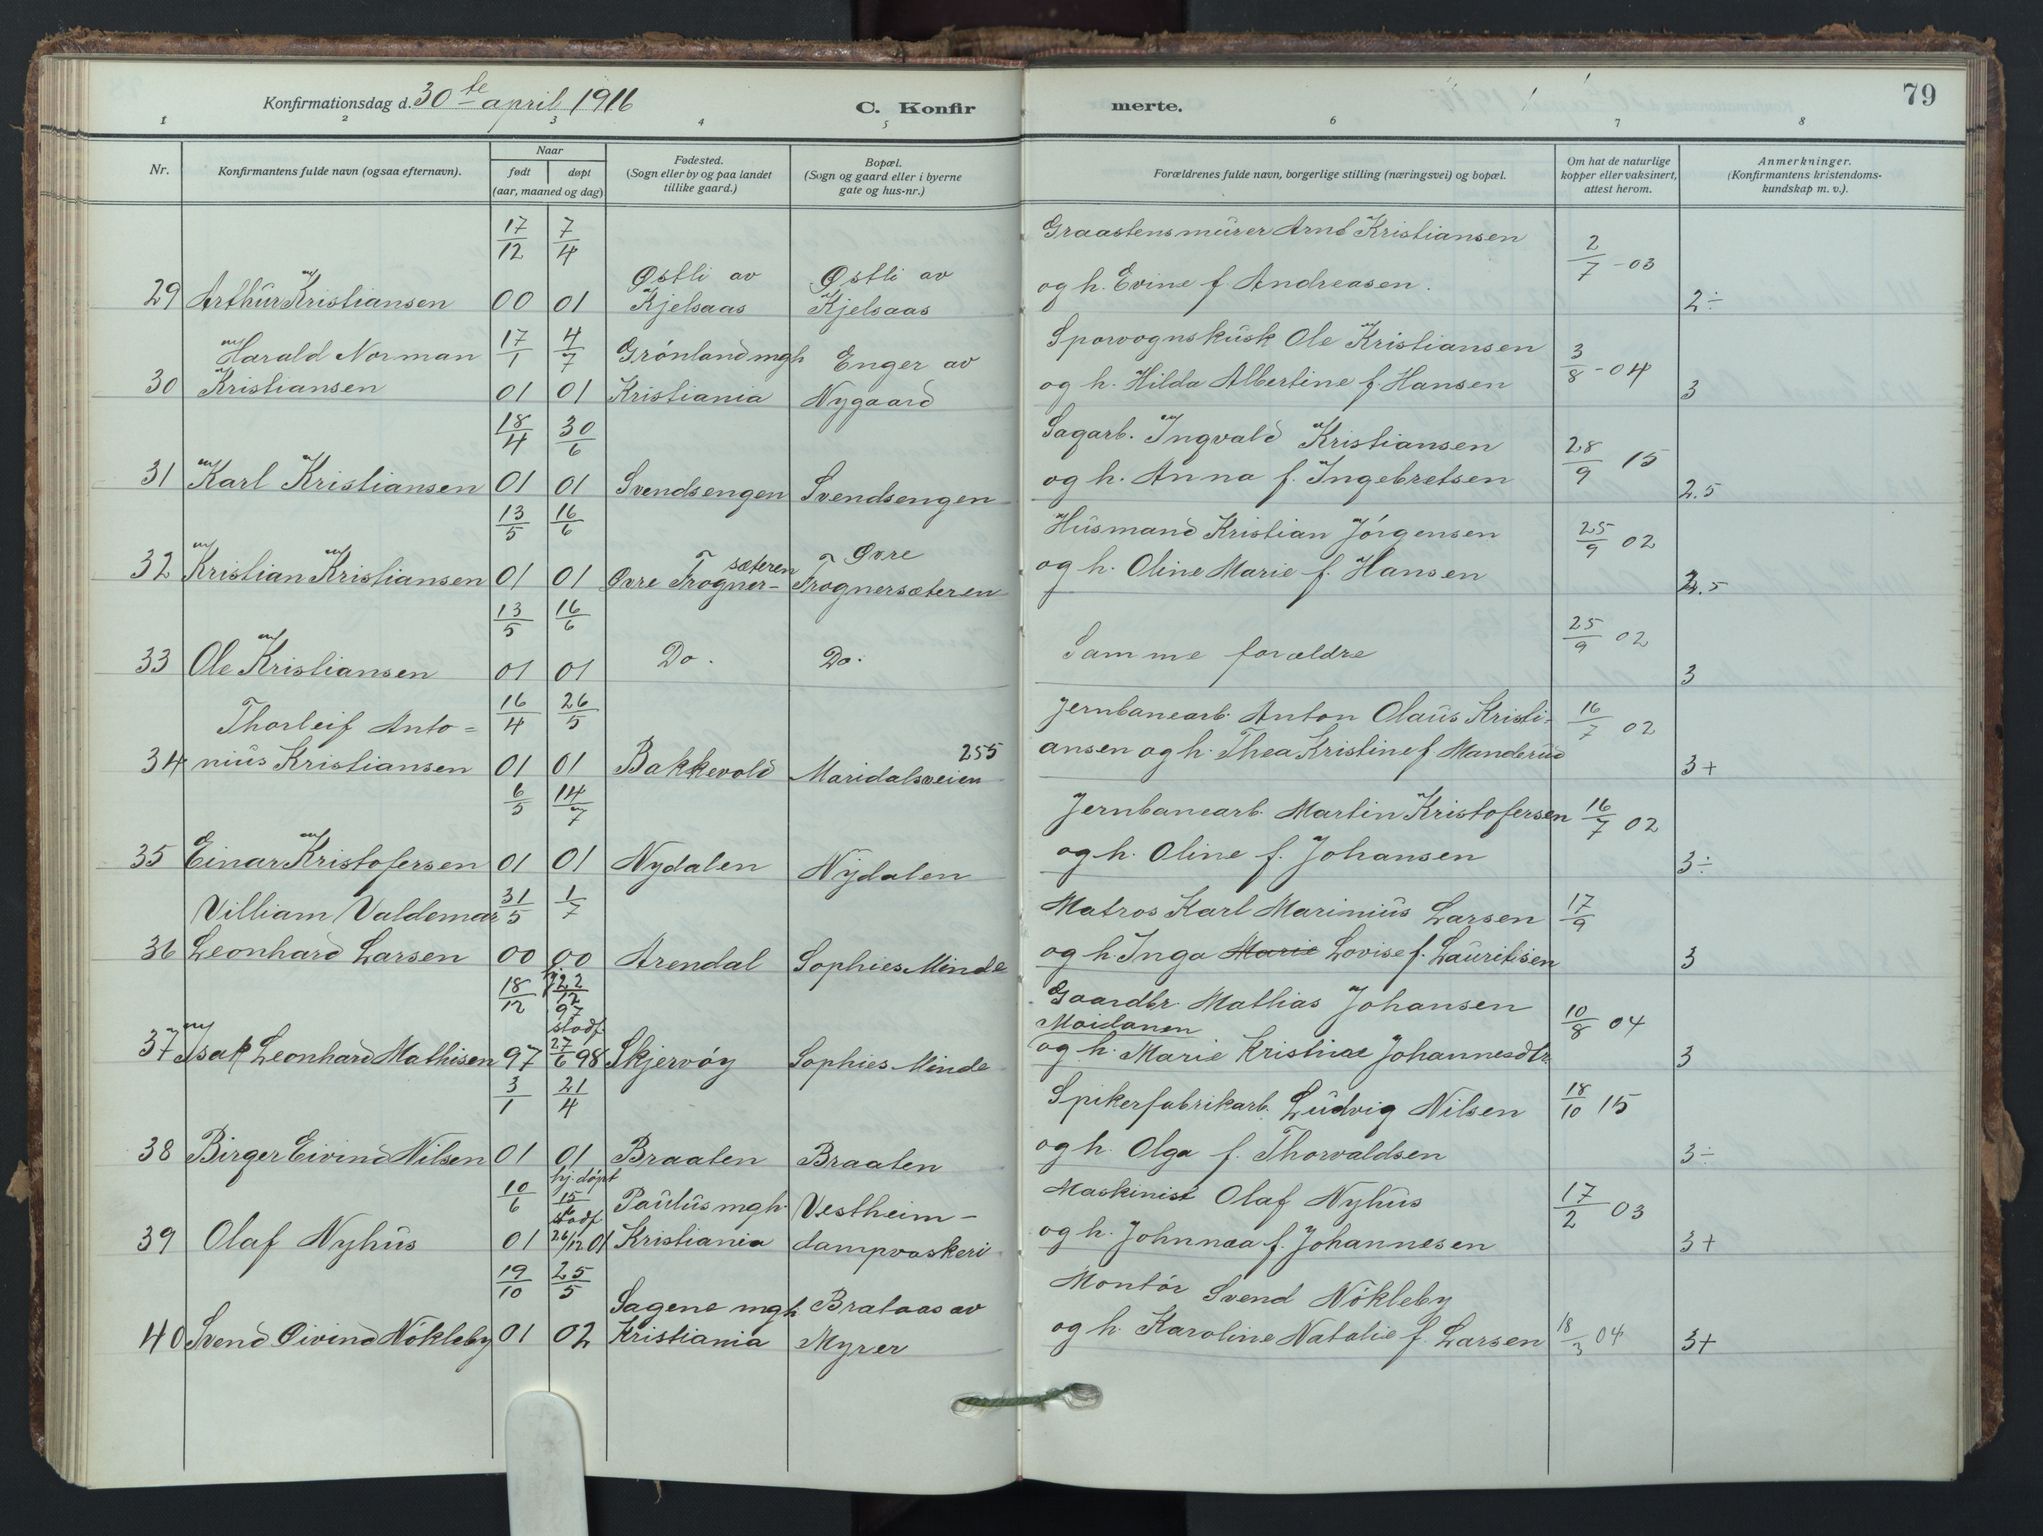 Konfirmationsdag d. 30te april 1916 C. Konfirmerte. 79
1 2 3 4 5 6 7 8
Nr. Konfirmantens fulde navn (ogsaa efternavn). Naar født døpt (aar, maaned og dag)
Fødested. (Sogn eller by og paa landet tillike gaard.)
Bopæl. (Sogn og gaard eller i byerne gate og hus-nr.)
Forældrenes fulde navn, borgerlige stilling (næringsvei) og bopæl.
Om hat de naturlige kopper eller vaksinert, attest herom.
Anmerkninger. (Konfirmantens kristendomskundskap m. v.).
17/12 7/4 Graastensmurer Arnt Kristiansen 2/7 - 03
Østli av Østli av
29 Arthur Kristiansen 00 01 Kjelsaas Kjelsaas og h. Evine f. Andreasen. 2÷
Harald Norman 17/1 4/7 Grønland mgh Enger av Sporvognskusk Ole Kristiansen 3/8 - 04
30 Kristiansen 01 01 Kristiania Nygaard og h. Hilda Albertine f. Hansen 3
18/4 30/6 Sagarb. Ingvald Kristiansen 28/9 15
31 Karl Kristiansen 01 01 Svendsengen Svendsengen og h. Anna f. Ingebretsen 2.5
13/5 16/6 Husmand Kristian Jørgensen 25/9 02
sæteren Øvre
32 Kristian Kristiansen 01 01 Øvre Frogner- Frognersæteren og h. Oline Marie f. Hansen 2.5
13/5 16/6 25/9 02
33 Ole Kristiansen 01 01 Do. Do. Samme forældre 3
Thorleif Anto= 16/4 26/5 Jernbanearb. Anton Olaus Kristi- 16/7 02
255
34 nius Kristiansen 01 01 Bakkevold Maridalsveien ansen og h. Thea Kristine f Manderud 3+
6/5 14/7 Jernbanearb. Martin Kristofersen 16/7 02
35 Einar Kristofersen 01 01 Nydalen Nydalen og h. Oline f. Johansen 3÷
Villiam Valdemar 31/5 1/7 Matros Karl Marinius Larsen 17/9
36 Leonhard Larsen 00 00 Arendal Sophies Minde og h. Inga Marie Lovise f. Lauritsen 3
18/12 hj. 22/12 97 Gaardbr. Mathias Johansen 10/8 04
stadf. Moidanen
37 Isak Leonhard Mathisen 97 27/6 98 Skjervøy Sophies Minde og h. Marie Kristine Johannesdtr. 3
3/1 21/4 Spikerfabrikarb. Ludvig Nilsen 18/10 15
38 Birger Eivind Nilsen 01 01 Braaten Braaten og h. Olga f. Thorvaldsen 3÷
10/6 hj. døpt 15/6 Paulus mgh. Vestheim- Maskinist Olaf Nyhus 17/2 03
stadf
39 Olaf Nyhus 01 26/12 01 Kristiania dampvaskeri og h. Johnnaa f. Johannesen 3+
19/10 25/5 Sagene mgh. Brataas av Montør Svend Nøkleby
40 Svend Øivind Nøkleby 01 02 Kristiania Myrer og h. Karoline Natalie f. Larsen 18/3 04 3+